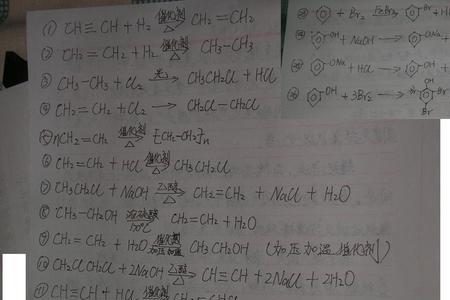 (1) CH≡CH + H2 催化剂 △ CH2=CH2
(2) CH2=CH2 + H2 催化剂 △ CH3-CH3
(3) CH3-CH3 + Cl2 光 → CH3CH2Cl + HCl
(4) CH2=CH2 + Cl2 → CH2Cl-CH2Cl
(5) nCH2=CH2 催化剂 △ [CH2-CH2]n
(6) CH2=CH2 + HCl 催化剂 △ CH3CH2Cl
(7) CH3CH2Cl + NaOH 乙醇 △ CH2=CH2 + NaCl + H2O
(8) CH3-CH2OH 浓硫酸 170℃ CH2=CH2 + H2O
(9) CH2=CH2 + H2O 催化剂 加压加温 CH3CH2OH (加压加温 催化剂)
(10) CH2ClCH2Cl + 2NaOH 乙醇 △ CH≡CH + 2NaCl + 2H2O
(11) CH≡CH + HCl 催化剂
+ Br2 FeBr3 Br
OH + NaOH → ONa
ONa + HCl → OH
OH + 3Br2 → OH Br Br Br